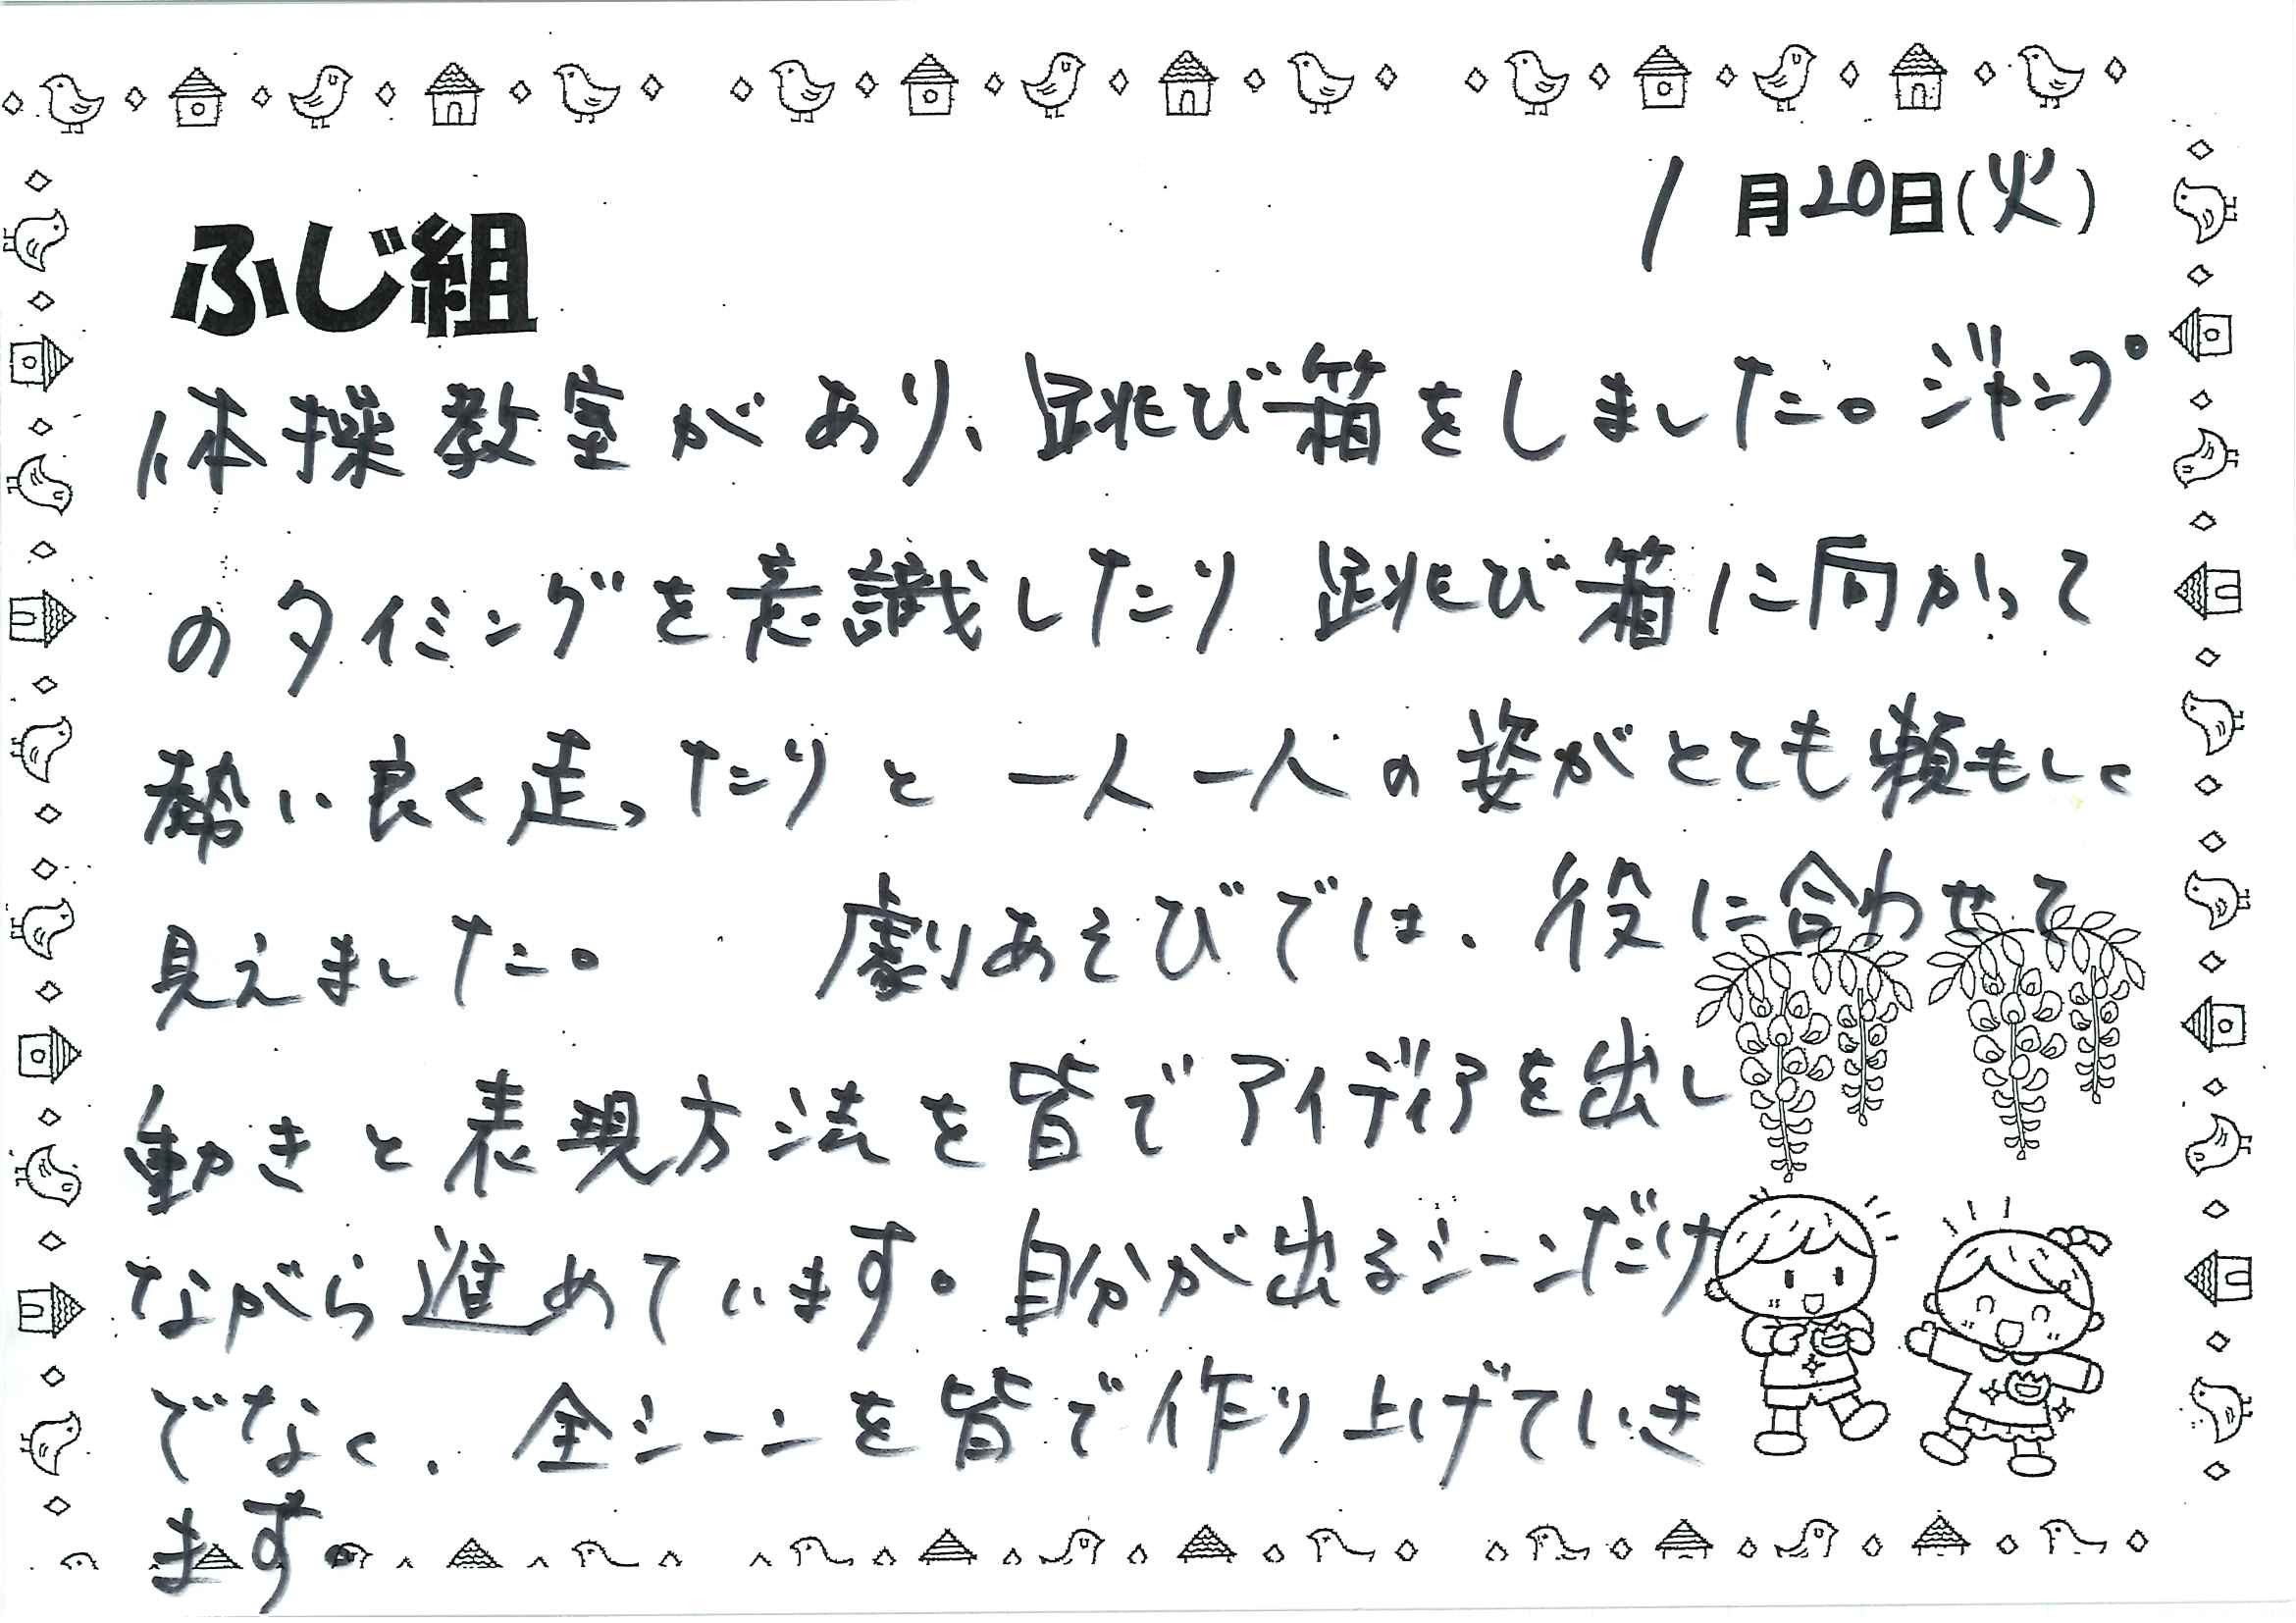 1月20日(火)
ふじ組
体操教室があり、跳び箱をしました。ジャンプ
のタイミングを意識したり 跳び箱に向かって
勢い良く走ったりと 一人一人の姿がとても頼もしく
見えました。 劇あそびでは、役に合わせて
動きと表現方法を皆でアイディアを出し
ながら進めています。自分が出るシーンだけ
でなく、全シーンを皆で作り上げていき
ます。